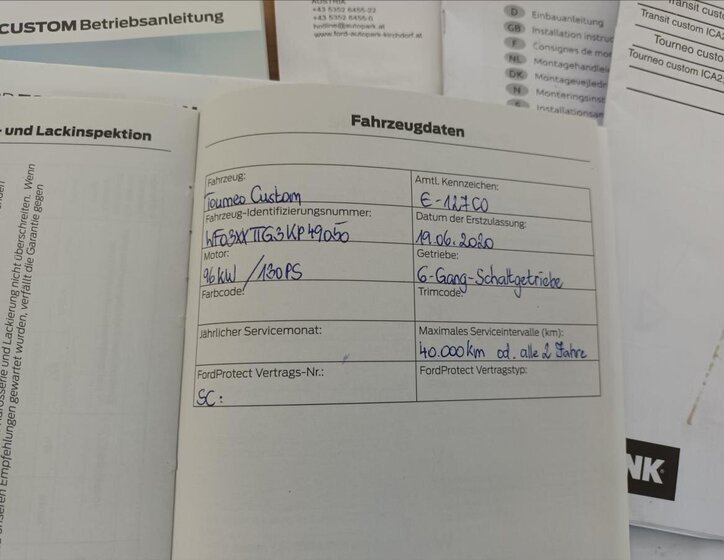 CUSTOM Betriebsanleitung
+43 5352 6455-0
www.ford-autopark-kirchdorf.at
D Einbauanleitung
GB Installation instruc
F Consignes de mon
NL Montagehandleid
DK Montagevejledn
N Monteringsinst
S Installationsan
Transit custom
Transit custom ICA2
Tourneo custo
Tourneo custom ICA2
- und Lackinspektion
arosserie und Lackierung nicht überschreiten. Wenn
nseren Empfehlungen gewartet wurden, verfällt die Garantie gegen
Fahrzeugdaten
Fahrzeug:
Tourneo Custom
Amtl. Kennzeichen:
E-127CO
Fahrzeug-Identifizierungsnummer:
WF03XXTTG3KP49050
Datum der Erstzulassung:
19.06.2020
Motor:
96kW / 130PS
Getriebe:
6-Gang-Schaltgetriebe
Farbcode:
Trimcode:
Jährlicher Servicemonat:
Maximales Serviceintervalle (km):
40.000km od. alle 2 Jahre
FordProtect Vertrags-Nr.:
SC:
FordProtect Vertragstyp:
NK